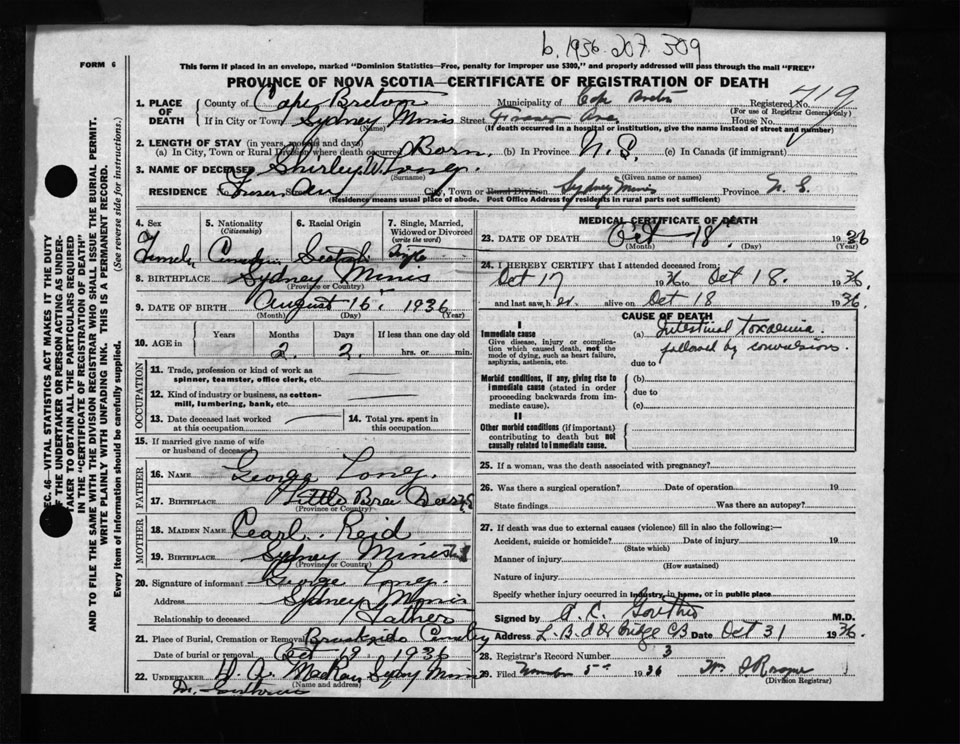 b. 1936-207-309
FORM 6
This form if placed in an envelope, marked "Dominion Statistics—Free, penalty for improper use $300," and properly addressed will pass through the mail "FREE"
PROVINCE OF NOVA SCOTIA—CERTIFICATE OF REGISTRATION OF DEATH
1. PLACE OF DEATH County of Cape Breton Municipality of Cape Breton Registered No. 719
(For use of Registrar General only)
If in City or Town Sydney Mines Street Fraser Ave. House No.
(Name) (If death occurred in a hospital or institution, give the name instead of street and number)
2. LENGTH OF STAY (in years, months and days)
(a) In City, Town or Rural Division where death occurred Born (b) In Province N. S. (c) In Canada (if immigrant)
3. NAME OF DECEASED Shirley W.
(Surname) (Given name or names)
RESIDENCE Fraser Ave City, Town or Rural Division Sydney Mines Province N. S.
(Residence means usual place of abode. Post Office Address for residents in rural parts not sufficient)
4. Sex 5. Nationality (Citizenship) 6. Racial Origin 7. Single, Married, Widowed or Divorced (write the word)
Female Canadian Scotch Single
8. BIRTHPLACE Sydney Mines
(Province or Country)
9. DATE OF BIRTH August 16 1936
(Month) (Day) (Year)
10. AGE in Years Months Days If less than one day old
2 2 hrs. or min.
OCCUPATION
11. Trade, profession or kind of work as spinner, teamster, office clerk, etc.
12. Kind of industry or business, as cotton-mill, lumbering, bank, etc.
13. Date deceased last worked at this occupation 14. Total yrs. spent in this occupation
15. If married give name of wife or husband of deceased
FATHER
16. Name George
17. Birthplace Little Bras
(Province or Country)
MOTHER
18. MAIDEN NAME Pearl Reid
19. BIRTHPLACE Sydney Mines
(Province or Country)
20. Signature of informant George
Address Sydney Mines
Relationship to deceased Father
21. Place of Burial, Cremation or Removal Brookside Cemetery
Date of burial or removal Oct 19 1936
22. UNDERTAKER Sydney Mines
(Name and address)
MEDICAL CERTIFICATE OF DEATH
23. DATE OF DEATH Oct 18 1936
(Month) (Day)
24. I HEREBY CERTIFY that I attended deceased from:
Oct 17 1936 to Oct 18. 1936
and last saw her alive on Oct 18 1936.
CAUSE OF DEATH
I
Immediate cause
Give disease, injury or complication which caused death, not the mode of dying, such as heart failure, asphyxia, asthenia, etc.
(a) Intestinal toxaemia
followed by convulsions.
due to
Morbid conditions, if any, giving rise to immediate cause (stated in order proceeding backwards from immediate cause).
(b)
due to
(c)
II
Other morbid conditions (if important) contributing to death but not causally related to immediate cause.
25. If a woman, was the death associated with pregnancy?
26. Was there a surgical operation? Date of operation 19
State findings Was there an autopsy?
27. If death was due to external causes (violence) fill in also the following:—
Accident, suicide or homicide? Date of injury 19
(State which)
Manner of injury
(How sustained)
Nature of injury
Specify whether injury occurred in industry, in home, or in public place
Signed by M.D.
Address Date Oct 31 1936.
28. Registrar's Record Number 3
29. Filed November 5th 1936
(Division Registrar)
SEC. 46—VITAL STATISTICS ACT MAKES IT THE DUTY
OF THE UNDERTAKER OR PERSON ACTING AS UNDERTAKER TO OBTAIN ALL THE PARTICULARS REQUIRED
IN THE "CERTIFICATE OF REGISTRATION OF DEATH"
AND TO FILE THE SAME WITH THE DIVISION REGISTRAR WHO SHALL ISSUE THE BURIAL PERMIT.
WRITE PLAINLY WITH UNFADING INK. THIS IS A PERMANENT RECORD.
Every item of information should be carefully supplied. (See reverse side for instructions.)